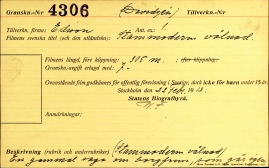 Gransk.-N:r 4306 (Davidsfs) Tillverkn.-N:r
Tillverkn. firma: Edison Ant. ex.:
Filmens svenska titel (och den utländska): Stammodern välnad.
Filmens längd, före klippning: 305 m. efter klippning:
Gransknings-avgift erlagd med: 7:-
Ovanstående film godkännes för offentlig förevisning i Sverige, dock icke för barn under 15 år.
Stockholm den 22 1912
Statens Biografbyrå.
Anmärkningar:
Beskrivning (rubrik och underrubriker) (Stammodern välnad)
En gammal saga om borgfrun, som